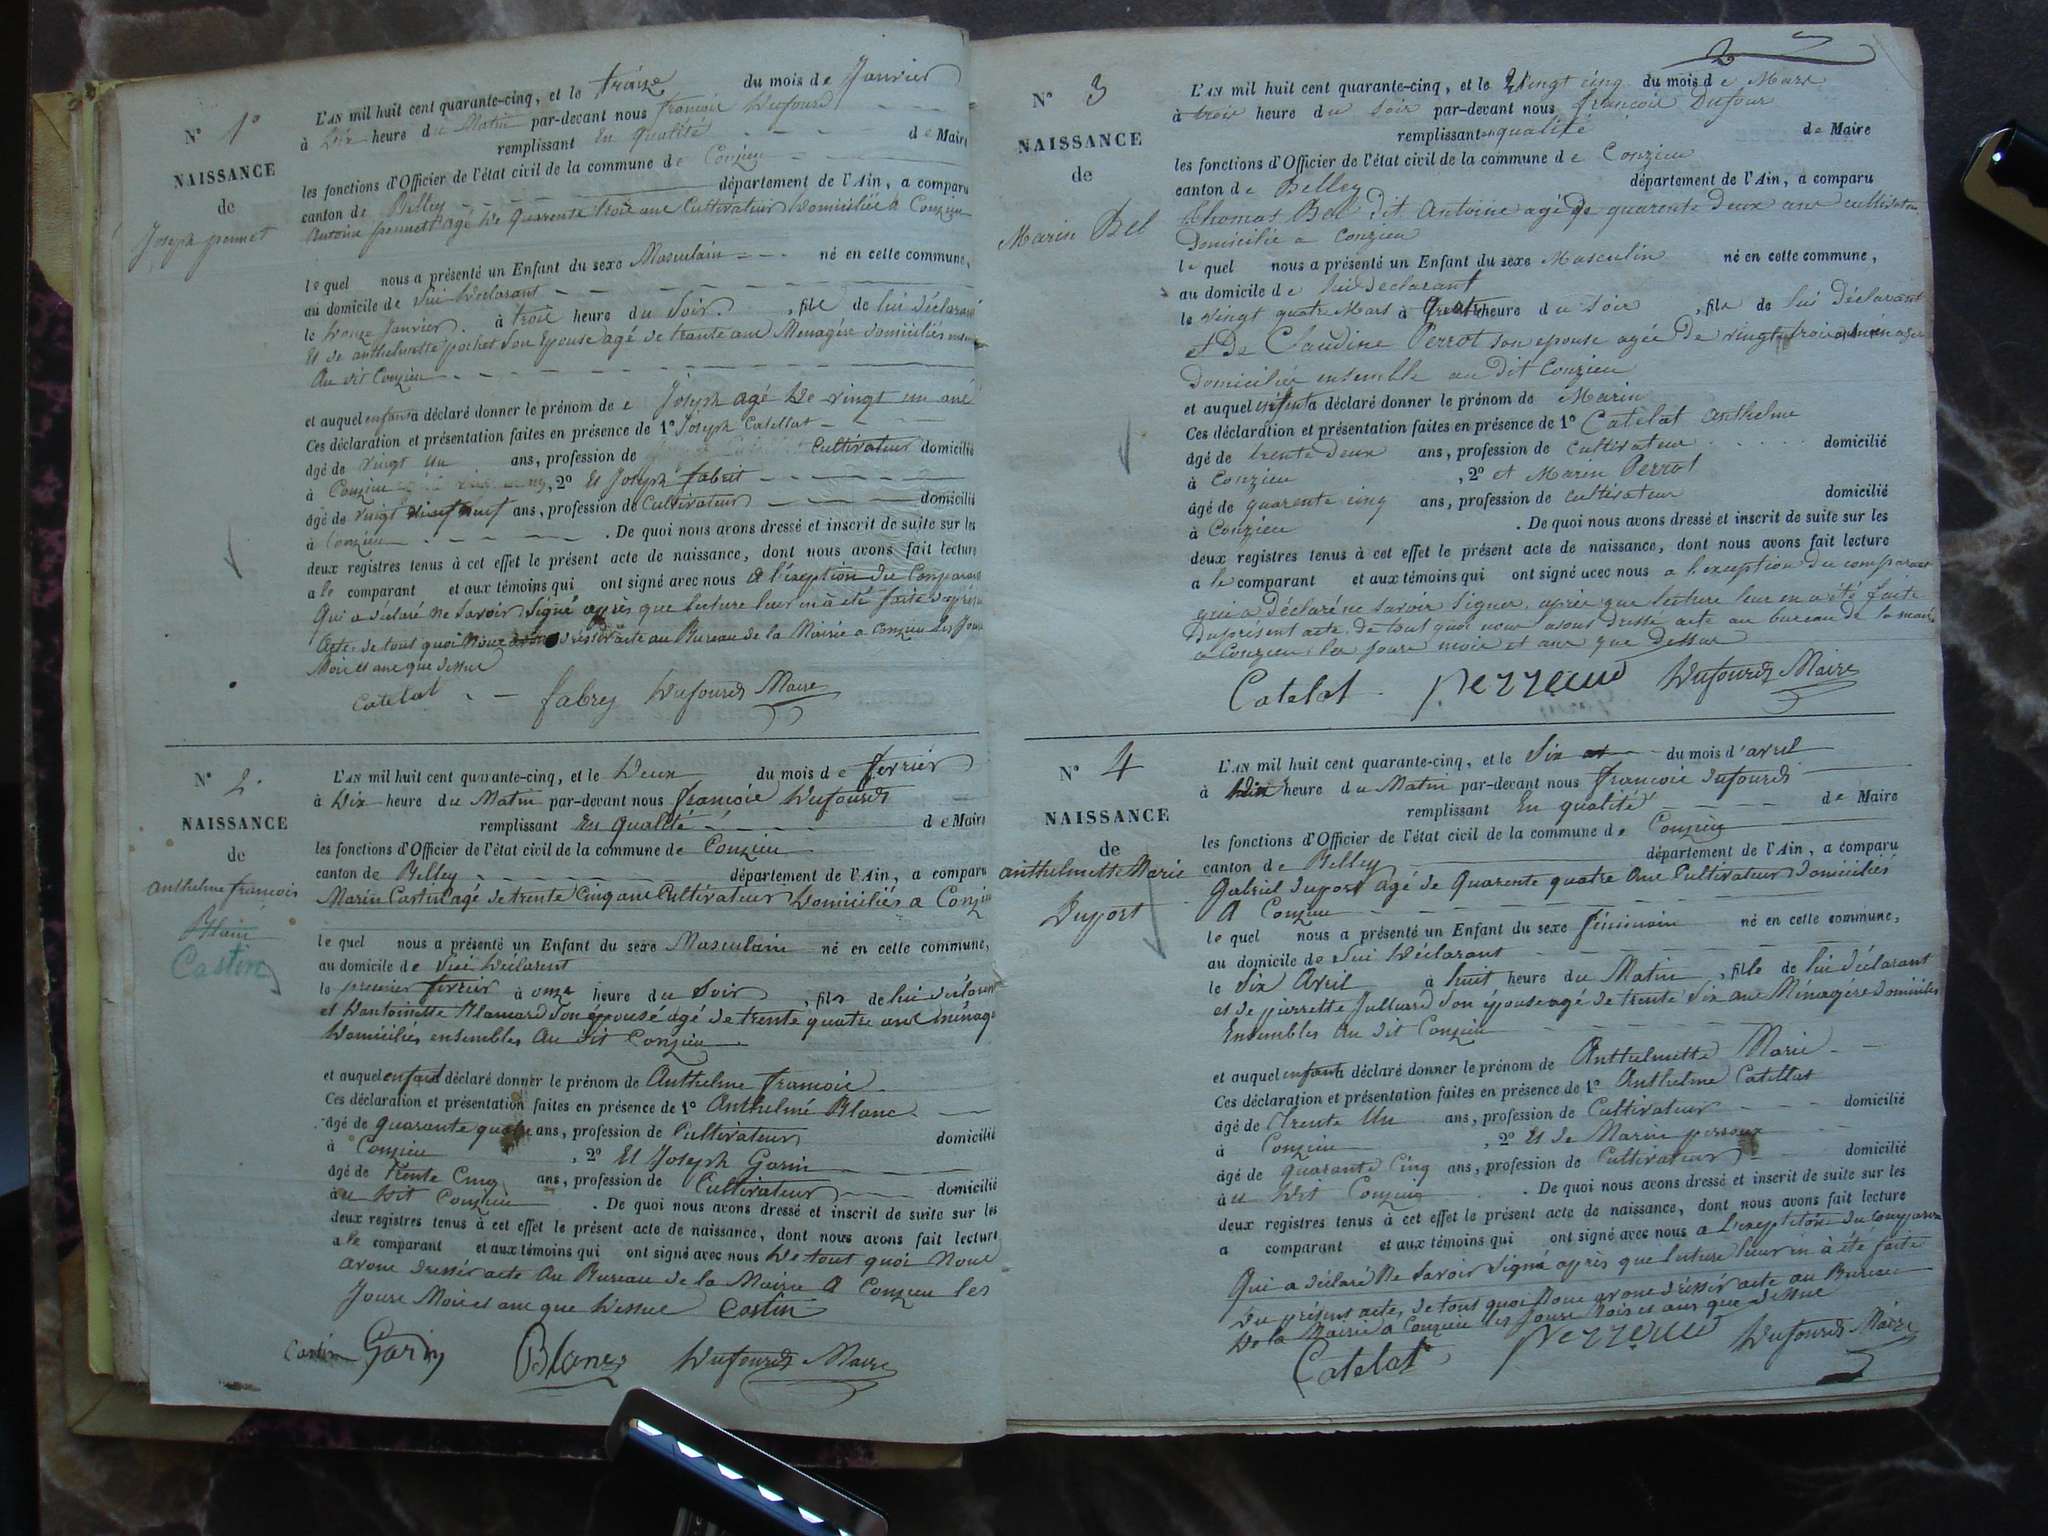 N° 1°
NAISSANCE
de
Joseph pennet
L'AN mil huit cent quarante-cinq, et le traize du mois de Janvier
à Dix heure du Matin par-devant nous francois Dufourd
remplissant En qualité de Maire
les fonctions d'Officier de l'état civil de la commune de Conzieu
canton de Belley département de l'Ain, a comparu
Antoine pennet agé De Quarente trois ans Cultivateur Domicilié à Conzieu
le quel nous a présenté un Enfant du sexe Masculain né en cette commune,
au domicile de Lui Déclarant
le Douze Janvier à trois heure du Soir, fils de lui déclarant
Et de anthelmette pochet son Epouse agé de trante ans Menagère domiciliés
Au dit Conzieu
et auquel enfant a déclaré donner le prénom de Joseph agé De vingt un ans
Ces déclaration et présentation faites en présence de 1° Joseph Catellat
âgé de vingt un ans, profession de Cultivateur domicilié
à Conzieu, 2° Et Joseph fabrit
âgé de vingt neuf ans, profession de Cultivateur domicilié
à Conzieu. De quoi nous avons dressé et inscrit de suite sur les
deux registres tenus à cet effet le présent acte de naissance, dont nous avons fait lecture
a le comparant et aux témoins qui ont signé avec nous à l'éxeption du Comparant
Qui a déclaré Ne Savoir Signé après que luture leur en à été faite du présent
Acte, de tout quoi Nous avons dréssér acte au Bureau de la Mairie a Conzieu les Jours
Mois et ans que dessus
Catelat fabrey Dufourd Maire
N° 2
NAISSANCE
de
Anthelme francois
Blain
Castin
L'AN mil huit cent quarante-cinq, et le Deux du mois de fevrier
à Dix heure du Matin par-devant nous francois Dufourd
remplissant En qualité de Maire
les fonctions d'Officier de l'état civil de la commune de Conzieu
canton de Belley département de l'Ain, a comparu
Marin Castin agé de trente Cinq ans Cultivateur Domiciliés a Conzieu
le quel nous a présenté un Enfant du sexe Masculain né en cette commune,
au domicile de Lui Déclarent
le premier fevrier à onze heure du Soir, fils de lui déclarant
et Dantoinette Son épousé agé de trente quatre ans menagè
Domiciliés ensembles Au dit Conzieu
et auquel enfant a déclaré donner le prénom de Anthelme francois
Ces déclaration et présentation faites en présence de 1° Anthelmé Blanc
âgé de quarante quatre ans, profession de Cultivateur domicilié
à Conzieu, 2° Et Joseph Garin
âgé de trente Cinq ans, profession de Cultivateur domicilié
au Dit Conzieu. De quoi nous avons dressé et inscrit de suite sur les
deux registres tenus à cet effet le présent acte de naissance, dont nous avons fait lecture
a le comparant et aux témoins qui ont signé avec nous De tout quoi Nous
avons dréssér acte Au Bureau de la Mairie A Conzieu les
Jours Mois et ans que Dessus Castin
Castin Garin Blanc Dufourd Maire
2
N° 3
NAISSANCE
de
Marin Bel
L'AN mil huit cent quarante-cinq, et le Vingt cinq du mois de Mars
à trois heure du soir par-devant nous francois Dufour
remplissant en qualité de Maire
les fonctions d'Officier de l'état civil de la commune de Conzieu
canton de Belley département de l'Ain, a comparu
thomas Bel Dit Antoine agé de quarente Deux ans cultivateur
Domicilié a Conzieu
le quel nous a présenté un Enfant du sexe Masculin né en cette commune,
au domicile de lui Declarant
le vingt quatre Mars à Quatre heure du soir, fils de lui Déclarant
et De Claudine Perrot son epouse agée De vingt trois ans ménagere
Domiciliés ensemble au Dit Conzieu
et auquel enfant a déclaré donner le prénom de Marin
Ces déclaration et présentation faites en présence de 1° Catelat Anthelme
âgé de trente Deux ans, profession de cultivateur domicilié
à Conzieu, 2° et Marin Perrot
âgé de quarente cinq ans, profession de cultivateur domicilié
à Conzieu. De quoi nous avons dressé et inscrit de suite sur les
deux registres tenus à cet effet le présent acte de naissance, dont nous avons fait lecture
a le comparant et aux témoins qui ont signé avec nous a l'exception Du comparant
qui a Déclaré ne savoir signer, après que lecture leur en a été faite
Du présent acte, De tout quoi nous avons Dressé acte au bureau De la mairie
a Conzieu les jours mois et ans que Dessus
Catelat Perreaud Dufourd Maire
N° 4
NAISSANCE
de
anthelmette Marie
Duport
L'AN mil huit cent quarante-cinq, et le Six du mois d'avril
à Dix heure du Matin par-devant nous francois dufourd
remplissant En qualité de Maire
les fonctions d'Officier de l'état civil de la commune de Conzieu
canton de Belley département de l'Ain, a comparu
Gabriel duport agé de Quarente quatre ans Cultivateur Domiciliés
A Conzieu
le quel nous a présenté un Enfant du sexe féminain né en cette commune,
au domicile de Lui Déclarant
le Six Avril à huit heure du Matin, fille de lui déclarant
et de pierrette Julliard Son épouse agé de trente Six ans Ménagère domiciliés
Ensembles Au dit Conzieu
et auquel enfant a déclaré donner le prénom de Anthelmette Marie
Ces déclaration et présentation faites en présence de 1° Anthelme Catellat
âgé de trente Un ans, profession de Cultivateur domicilié
à Conzieu, 2° Et de Marin
âgé de quarante Cinq ans, profession de Cultivateur domicilié
au Dit Conzieu. De quoi nous avons dressé et inscrit de suite sur les
deux registres tenus à cet effet le présent acte de naissance, dont nous avons fait lecture
a comparant et aux témoins qui ont signé avec nous a l'exeption du Comparan
Qui a déclaré Ne Savoir Signé après que luture leur en à été faite
Du présent acte, de tout quoi Nous avons dréssér acte au Bureau
De la Mairie a Conzieu les Jours Mois et ans que dessus
Catelat Perreaud Dufourd Maire